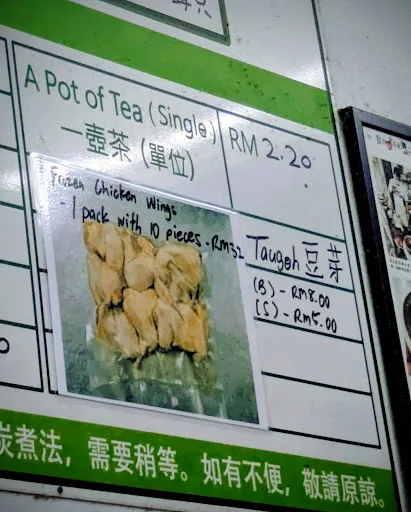 A Pot of Tea (Single)
一壺茶 (單位)
RM 2.20
Frozen Chicken Wings
- 1 pack with 10 pieces - RM32
Taugeh 豆芽
(B) - RM8.00
(S) - RM5.00
炭煮法，需要稍等。如有不便，敬請原諒。